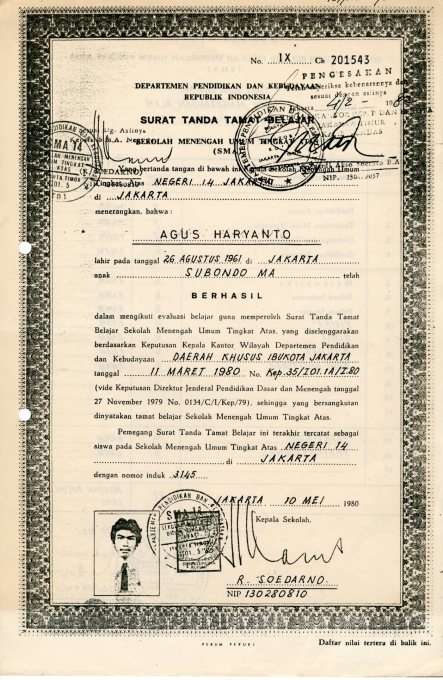 No. IX Ch 201543
PENGESAKAN
DEPARTEMEN PENDIDIKAN DAN KEBUDAYAAN
REPUBLIK INDONESIA
SURAT TANDA TAMAT BELAJAR
SEKOLAH MENENGAH UMUM TINGKAT
(SMA)
bertanda tangan di bawah ini Kepala Sekolah Menengah Umum
Tingkat Atas NEGERI 14 JAKARTA
di JAKARTA
menerangkan, bahwa :
AGUS HARYANTO
lahir pada tanggal 26 AGUSTUS 1961 di JAKARTA
anak SUBONDO MA telah
BERHASIL
dalam mengikuti evaluasi belajar guna memperoleh Surat Tanda Tamat
Belajar Sekolah Menengah Umum Tingkat Atas, yang diselenggarakan
berdasarkan Keputusan Kepala Kantor Wilayah Departemen Pendidikan
dan Kebudayaan DAERAH KHUSUS IBUKOTA JAKARTA
tanggal 11 MARET 1980 No. Kep.35/I01.1A/I.80
(vide Keputusan Direktur Jenderal Pendidikan Dasar dan Menengah tanggal
27 November 1979 No. 0134/C/I/Kep/79), sehingga yang bersangkutan
dinyatakan tamat belajar Sekolah Menengah Umum Tingkat Atas.
Pemegang Surat Tanda Tamat Belajar ini terakhir tercatat sebagai
siswa pada Sekolah Menengah Umum Tingkat Atas NEGERI 14
di JAKARTA
dengan nomor induk 3145
JAKARTA 10 MEI 1980
Kepala Sekolah,
SMA 14
R. SOEDARNO
NIP 130280810
PERUM PERURI
Daftar nilai tertera di balik ini.